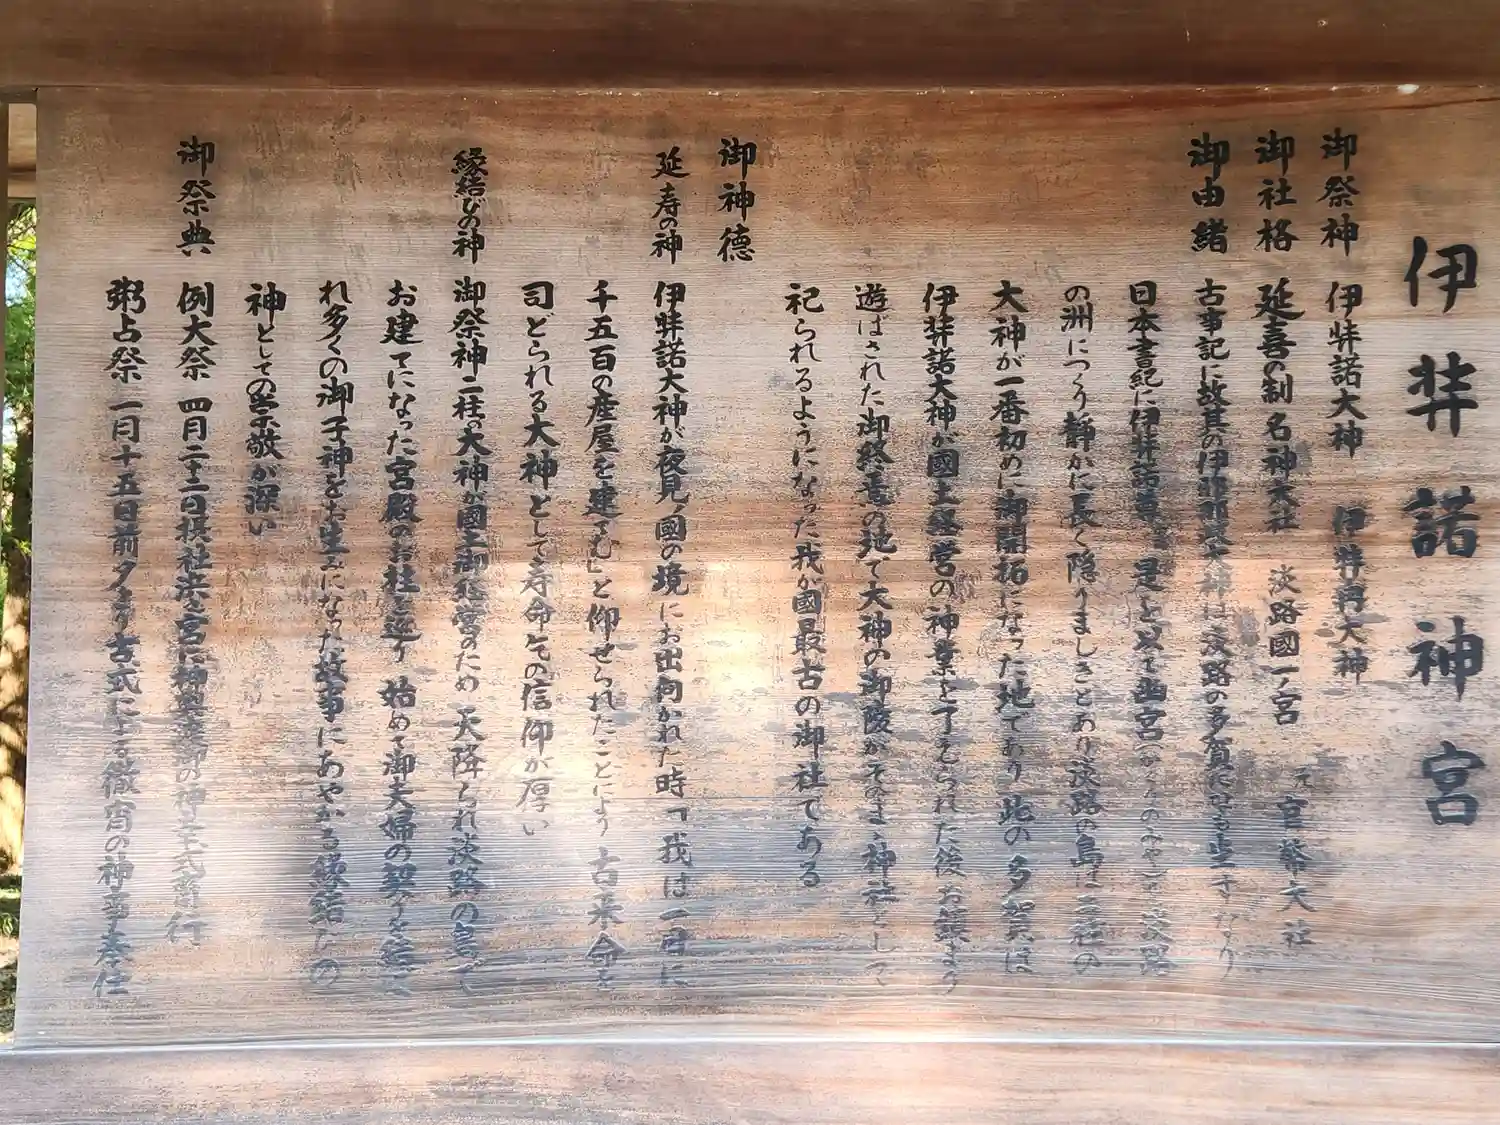 伊弉諾神宮
御祭神 伊弉諾大神 伊弉冉大神
御社格 延喜の制 名神大社 淡路國一ノ宮 元官幣大社
御由緒 古事記に故其の伊邪那岐大神は淡路の多賀になも坐すなり
日本書紀に伊弉諾尊 是を以て幽宮(かくりのみや)を淡路
の洲につくり静かに長く隠りましきとあり淡路の島は二柱の
大神が一番初めに御開拓になった地であり 此の多賀は
伊弉諾大神が國土経営の神業を了えられた後お鎮まり
遊ばされた御終焉の地で大神の御陵がそのまゝ神社として
祀られるようになった我が國最古の御社である
御神徳
延寿の神 伊弉諾大神が夜見ノ國の境にお出向かれた時「我は一日に
千五百の産屋を建てむ」と仰せられたことにより 古来命を
司どられる大神として寿命乞の信仰が厚い
縁結びの神 御祭神二柱の大神が國土御経営のため 天降られ淡路の島で
お建てになった宮殿のお柱を巡り 始めて御夫婦の契りを結ば
れ多くの御子神をお生みになった故事にあやかる縁結びの
神としての崇敬が深い
御祭典 例大祭 四月二十二日摂社浜之宮に神輿渡御の神幸式斎行
粥占祭 一月十五日前夕より古式による徹宵の神事奉仕